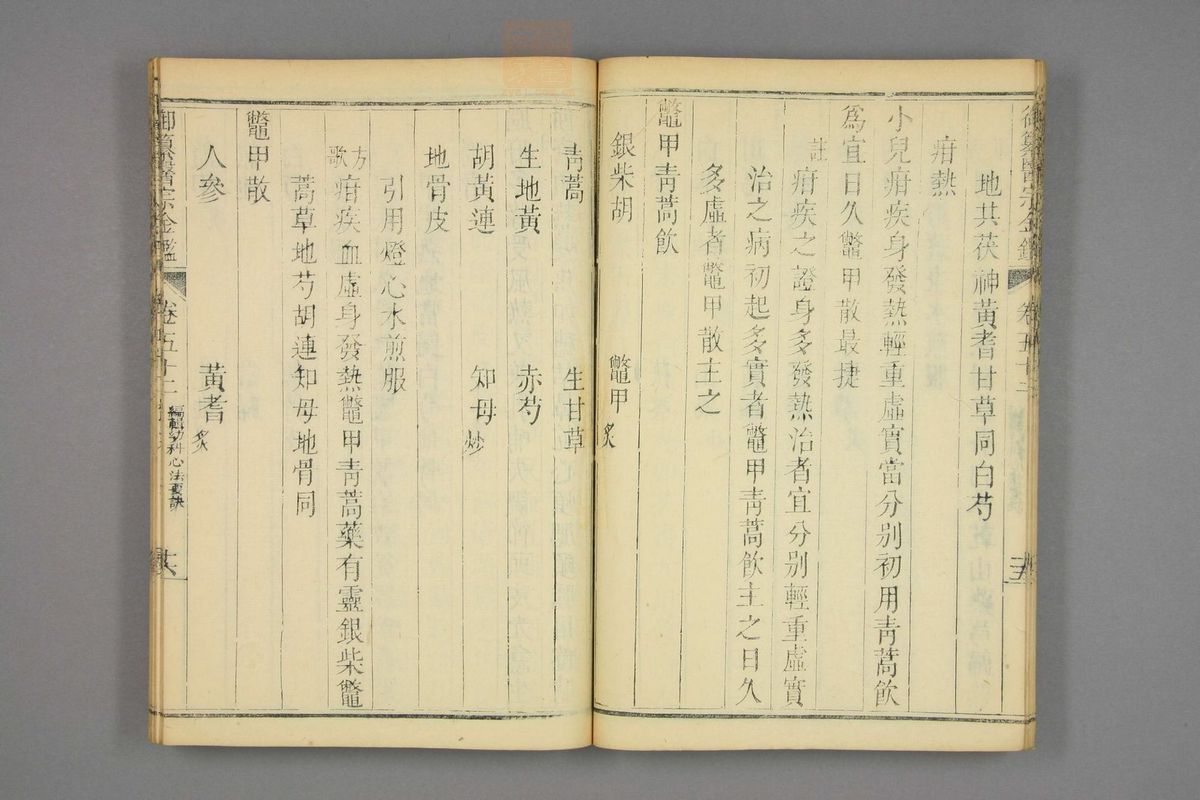 御纂醫宗金鑑
卷五十二
十五
地共茯神黃耆甘草同白芍
疳熱
小兒疳疾身發熱輕重虛實當分別初用靑蒿飲
爲宜日久鼈甲散最捷
註
疳疾之證身多發熱治者宜分別輕重虛實
治之病初起多實者鼈甲靑蒿飲主之日久
多虛者鼈甲散主之
鼈甲靑蒿飲
銀柴胡 鼈甲炙
靑蒿 生甘草
生地黃 赤芍
胡黃連 知母炒
地骨皮
引用燈心水煎服
方歌
疳疾血虛身發熱鼈甲靑蒿藥有靈銀柴鼈
蒿草地芍胡連知母地骨同
鼈甲散
人參 黃耆炙
御纂醫宗金鑑
卷五十二
編輯幼科心法要訣
十六